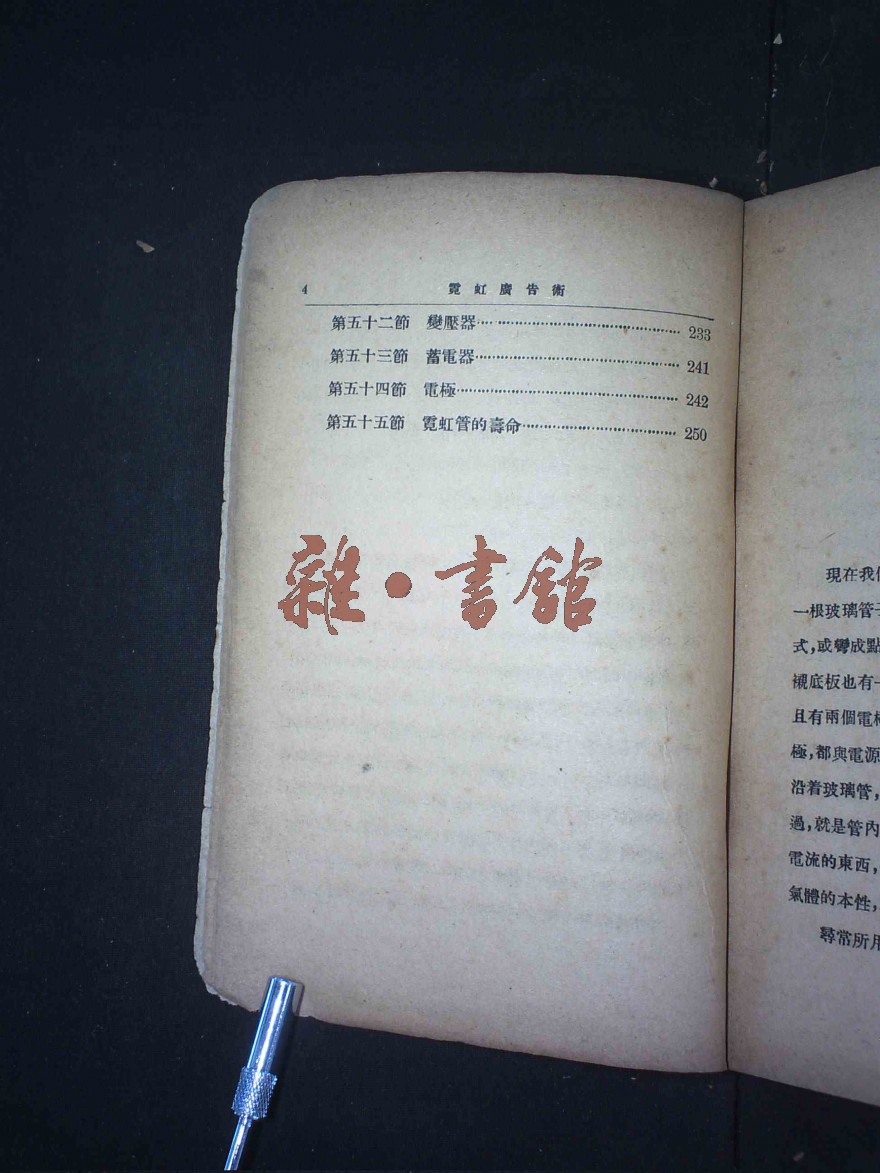 4 霓虹廣告術
第五十二節 變壓器 233
第五十三節 蓄電器 241
第五十四節 電極 242
第五十五節 霓虹管的壽命 250
雜·書館
現在我
一根玻璃管
式,或彎成點
襯底板也有一
且有兩個電極
極,都與電源
沿着玻璃管,
過,就是管內
電流的東西,
氣體的本性,
尋常所用